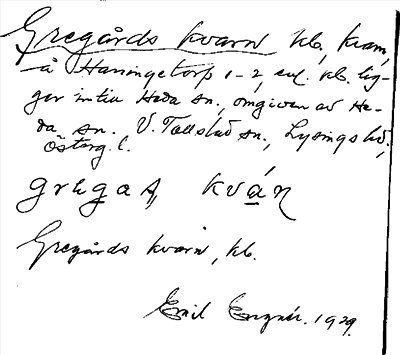 Gregårds kvarn kb, kvarn,
å Haningetorp 1-2, enl. kb. lig-
ger intill Heda sn, omgiven av He-
da sn. V. Tollstad sn, Lysings hd,
Österg. l.
gregas, kván
Gregårds kvarn, kb.
Emil 1929.